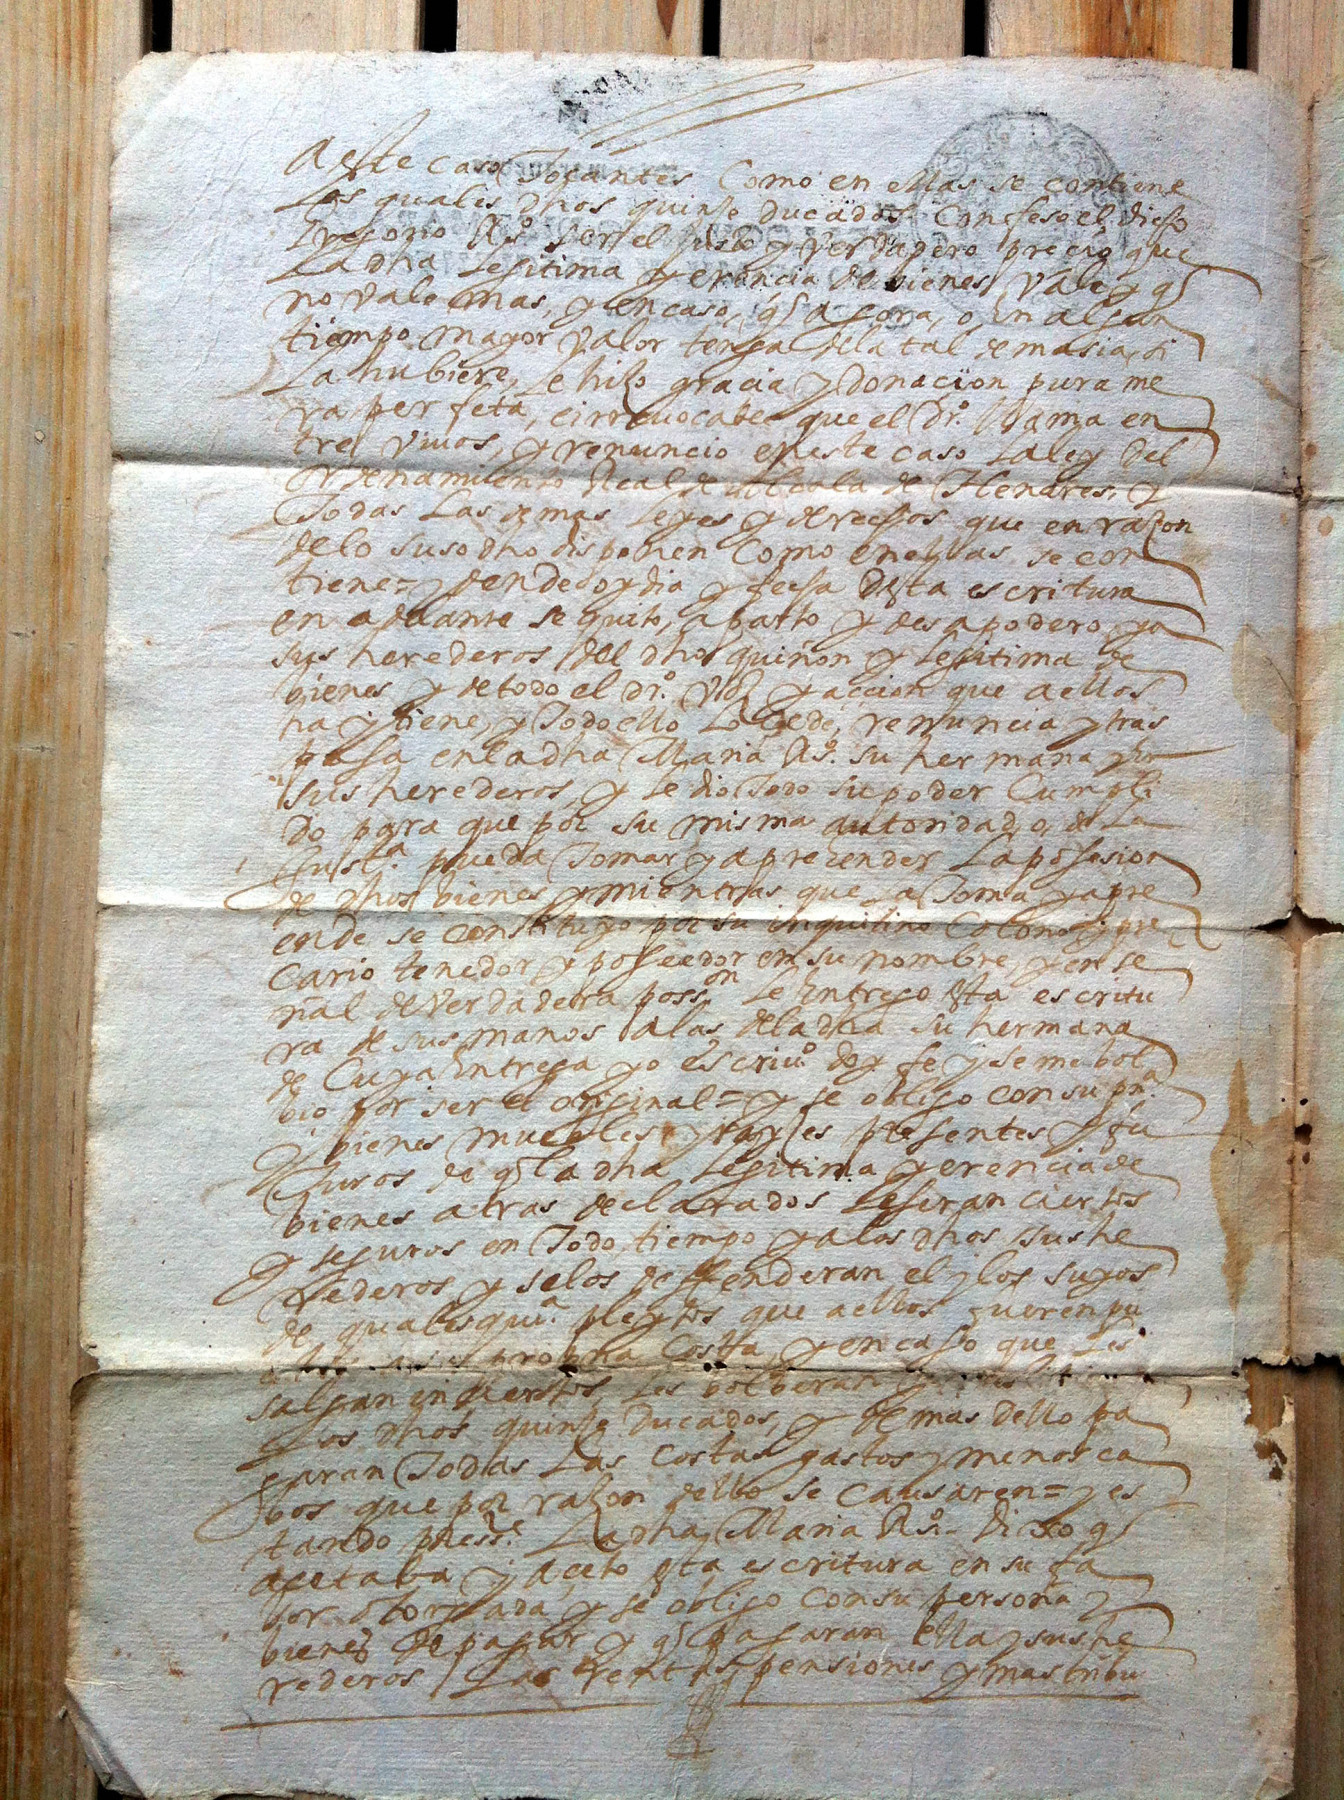 a este caso Tocantes Como en ellas se contiene
Los quales dhos quinze ducados Confeso el dicho
Gregorio Rs. ser el justo y Verdadero precio que
La dha Legitima y erencia de bienes Vale y q
no Vale mas, y en caso, q agora, o, En algun
tiempo mayor Valor tenga della tal demasia si
La hubiere, Le hizo gracia y donaçion pura me
ra perfeta, e irrevocable que el Dro. llama en
tre Vivos, y renuncio en este caso La ley del
Ordenamiento Real de Alcala de Henares, y
Todas Las demas Leyes y derechos que en razon
de lo susodho disponen Como en ellas se con
tiene = y dende oy dia y fecha desta escritura
en adelante se quito, aparto y desapodero, y a
sus herederos del dho quiñon y Legitima de
bienes y de todo el dro. y accion que a ellos
ha y tiene, y Todo ello Lo Cede, renuncia y tras
pasa en la dha Maria Rs. su hermana y en
sus herederos, y Le dio Todo su poder Cumpli
do para que por su misma autoridad, o, de La
Justa. pueda Tomar y aprehender La posesion
de dhos bienes y mientras que La Toma y apre
ende se constituyo por su Inquilino Colono y pre
Cario tenedor y posseedor en su nombre, y en se
ñal de Verdadera posson Le Entrego esta escritu
ra de sus manos a las de la dha su hermana
de Cuya Entrega yo el escriuo. doy fe y se me bol
bio por ser el original = y se obligo con su pna
y bienes muebles y rayzes presentes y fu
Turos de q La dha Legitima y erencia de
bienes atras declarados Le seran ciertos
y seguros en Todo tiempo y a los dhos sus he
rederos, y se los deffenderan el y los suyos
de qualesquia. pleytos que a ellos fueren pu
propria Costta, y en caso que Les
salgan inciertos Les bolberan
Los dhos quinze Ducados, y demas dello pa
garan Todas Las costas gastos y menosca
bos que por razon dello se causaren = y es
tando press.te La dha Maria Rs. Dixo q
acetaba y aceto esta escritura en su fa
bor otorgada y se obligo con su persona y
bienes de pagar y q pagaran ella y sus he
rederos Las rentas, pensiones y mas tribu